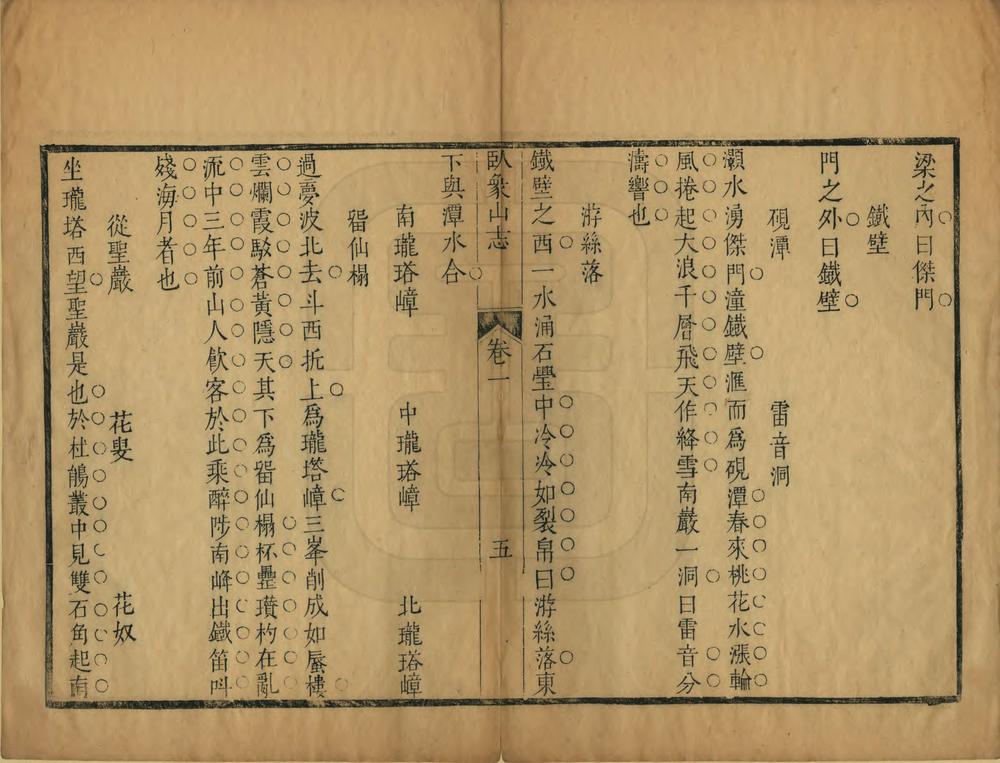 梁之內曰傑門
鐵壁
門之外曰鐵壁
硯潭　雷音洞
灝水湧傑門潼鐵壁滙而爲硯潭春來桃花水漲輪
風捲起大浪千層飛天作絳雪南巖一洞曰雷音分
濤響也
游絲落
鐵壁之西一水涌石壘中冷冷如裂帛曰游絲落東
臥象山志　卷一　五
下與潭水合
南瓏塔嶂　中瓏塔嶂　北瓏塔嶂
畱仙榻
過夢波北去斗西折上爲瓏塔嶂三峯削成如蜃樓
雲爛霞駁蒼黃隱天其下爲畱仙榻杯罍瓚杓在亂
流中三年前山人飮客於此乘醉陟南峰出鐵笛呌
殘海月者也
從聖巖　花叟　花奴
坐瓏塔西望聖巖是也於杜鵑叢中見雙石角起南